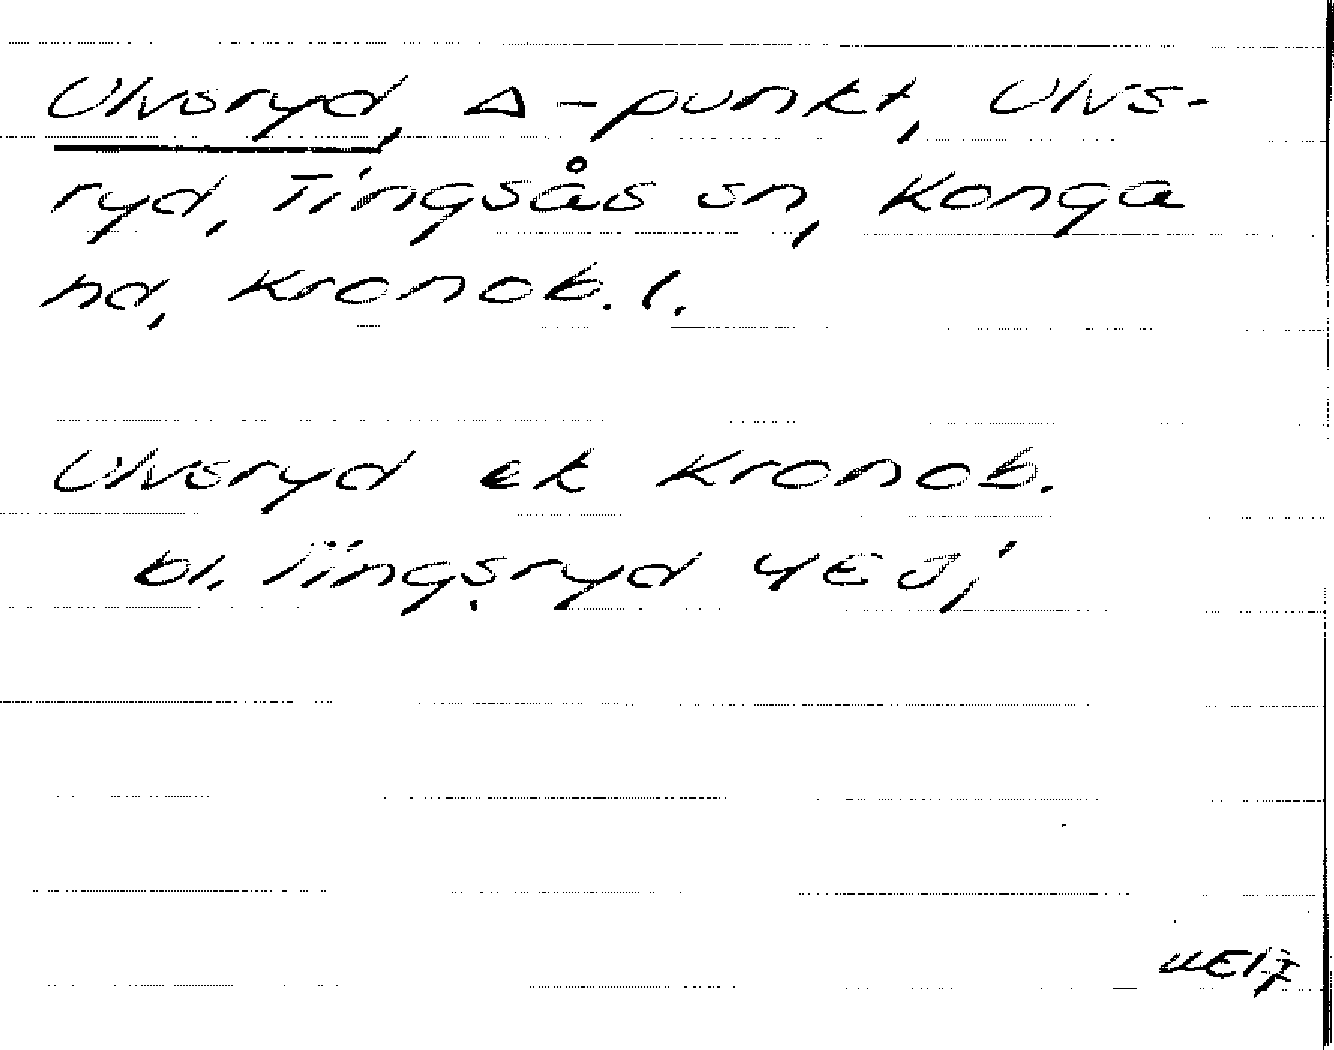 Ulvsryd, Δ-punkt, Ulvs-
ryd, Tingsås sn, Konga
hd, Kronob. l.
Ulvsryd ek Kronob.
bl. Tingsryd 4E